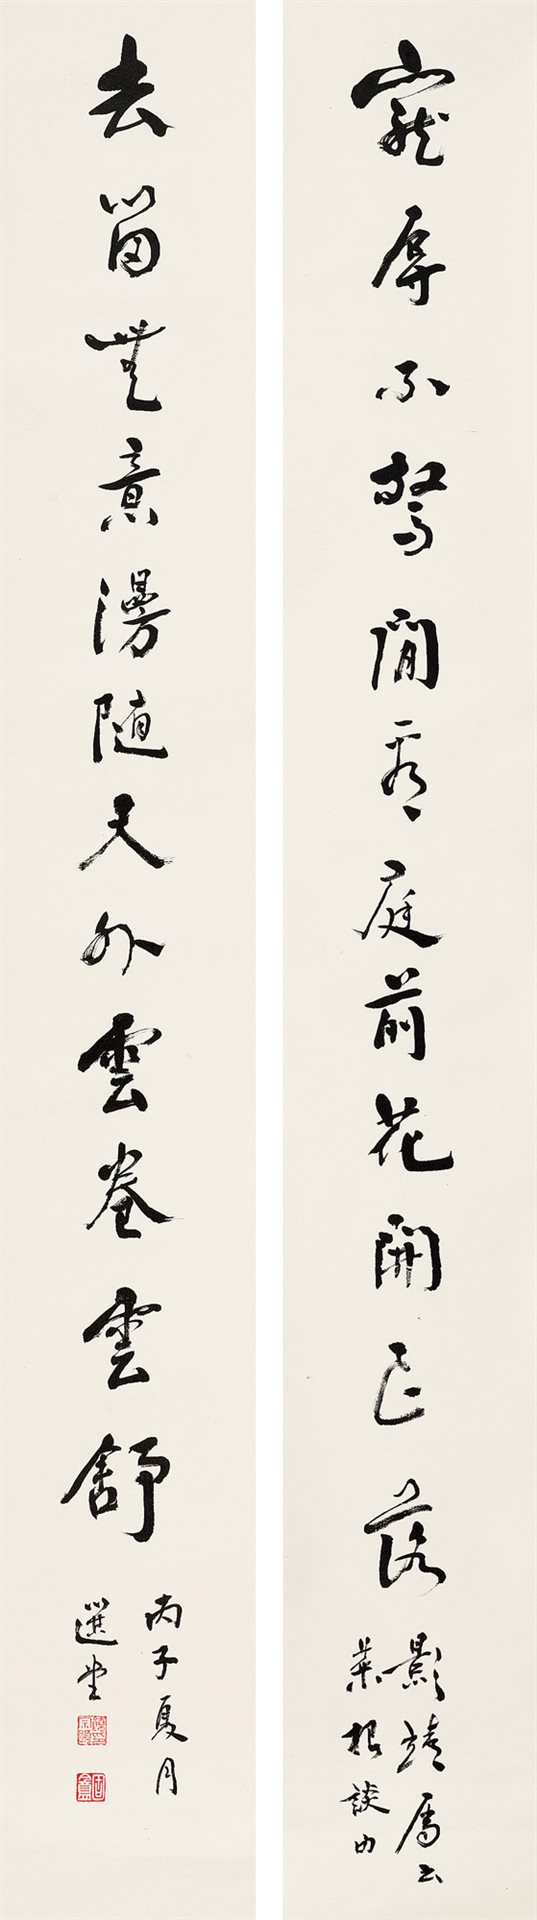 寵辱不驚閒看庭前花開已落
影靖屬書
菜根談句
去留無意漫隨天外雲卷雲舒
丙子夏月
選堂
固盦